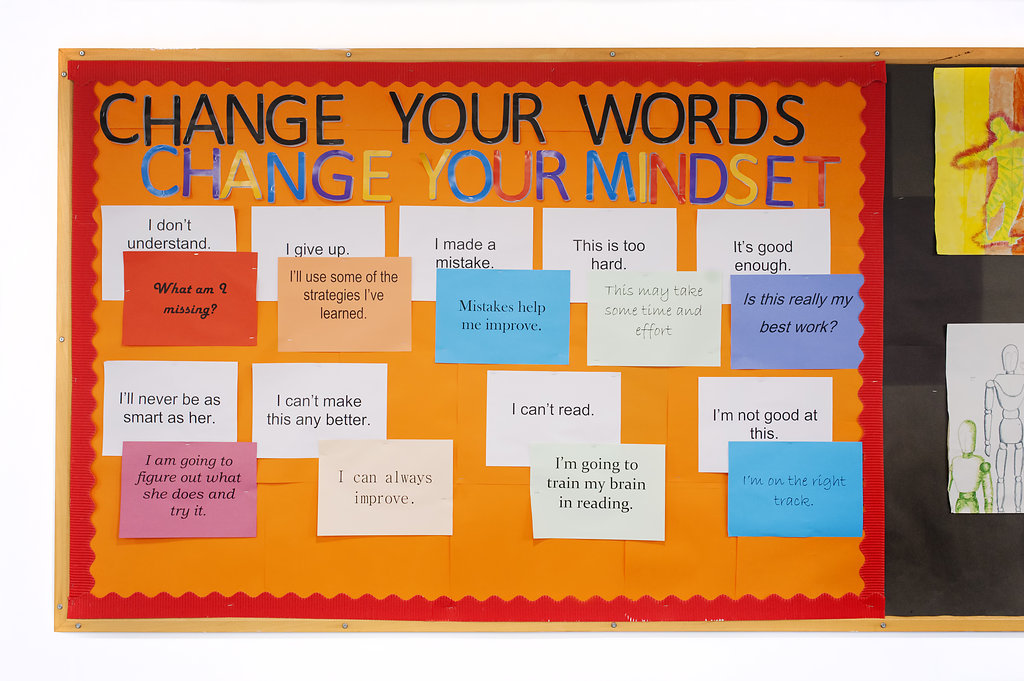 CHANGE YOUR WORDS
CHANGE YOUR MINDSET
I don't
understand.
What am I
missing?
I give up.
I'll use some of the
strategies I've
learned.
I made a
mistake.
Mistakes help
me improve.
This is too
hard.
This may take
some time and
effort
It's good
enough.
Is this really my
best work?
I'll never be as
smart as her.
I am going to
figure out what
she does and
try it.
I can't make
this any better.
I can always
improve.
I can't read.
I'm going to
train my brain
in reading.
I'm not good at
this.
I'm on the right
track.